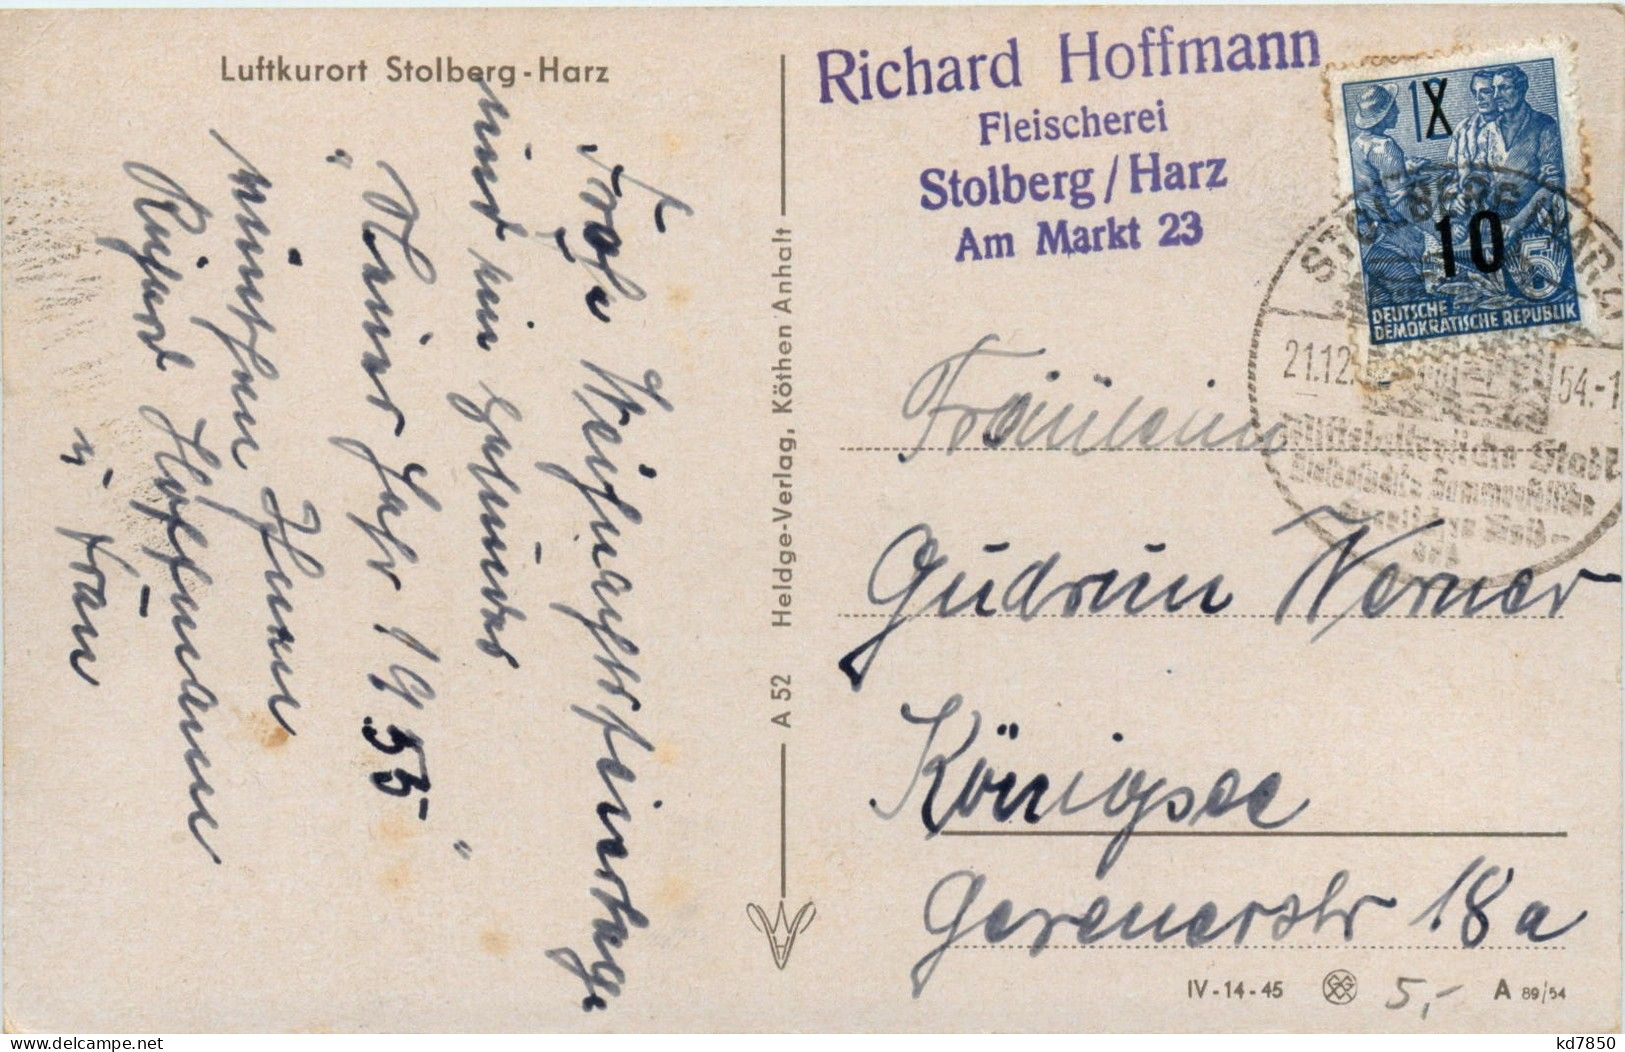 Luftkurort Stolberg-Harz
Frohe Weihnachtsfeiertage
und ein gesundes
"Neues Jahr 1955"
wünschen Ihnen
Richard Hoffmann
u. Frau
A 52 Heldge-Verlag, Köthen Anhalt
Richard Hoffmann
Fleischerei
Stolberg / Harz
Am Markt 23
12
10
5
DEUTSCHE
DEMOKRATISCHE REPUBLIK
STOLBERG (HARZ)
21.12. 54.-1
Mittelalterliche Stadt
Fräulein
Gudrun Werner
Königsee
Gerenerstr 18a
IV-14-45 5,- A 89/54
kd7850